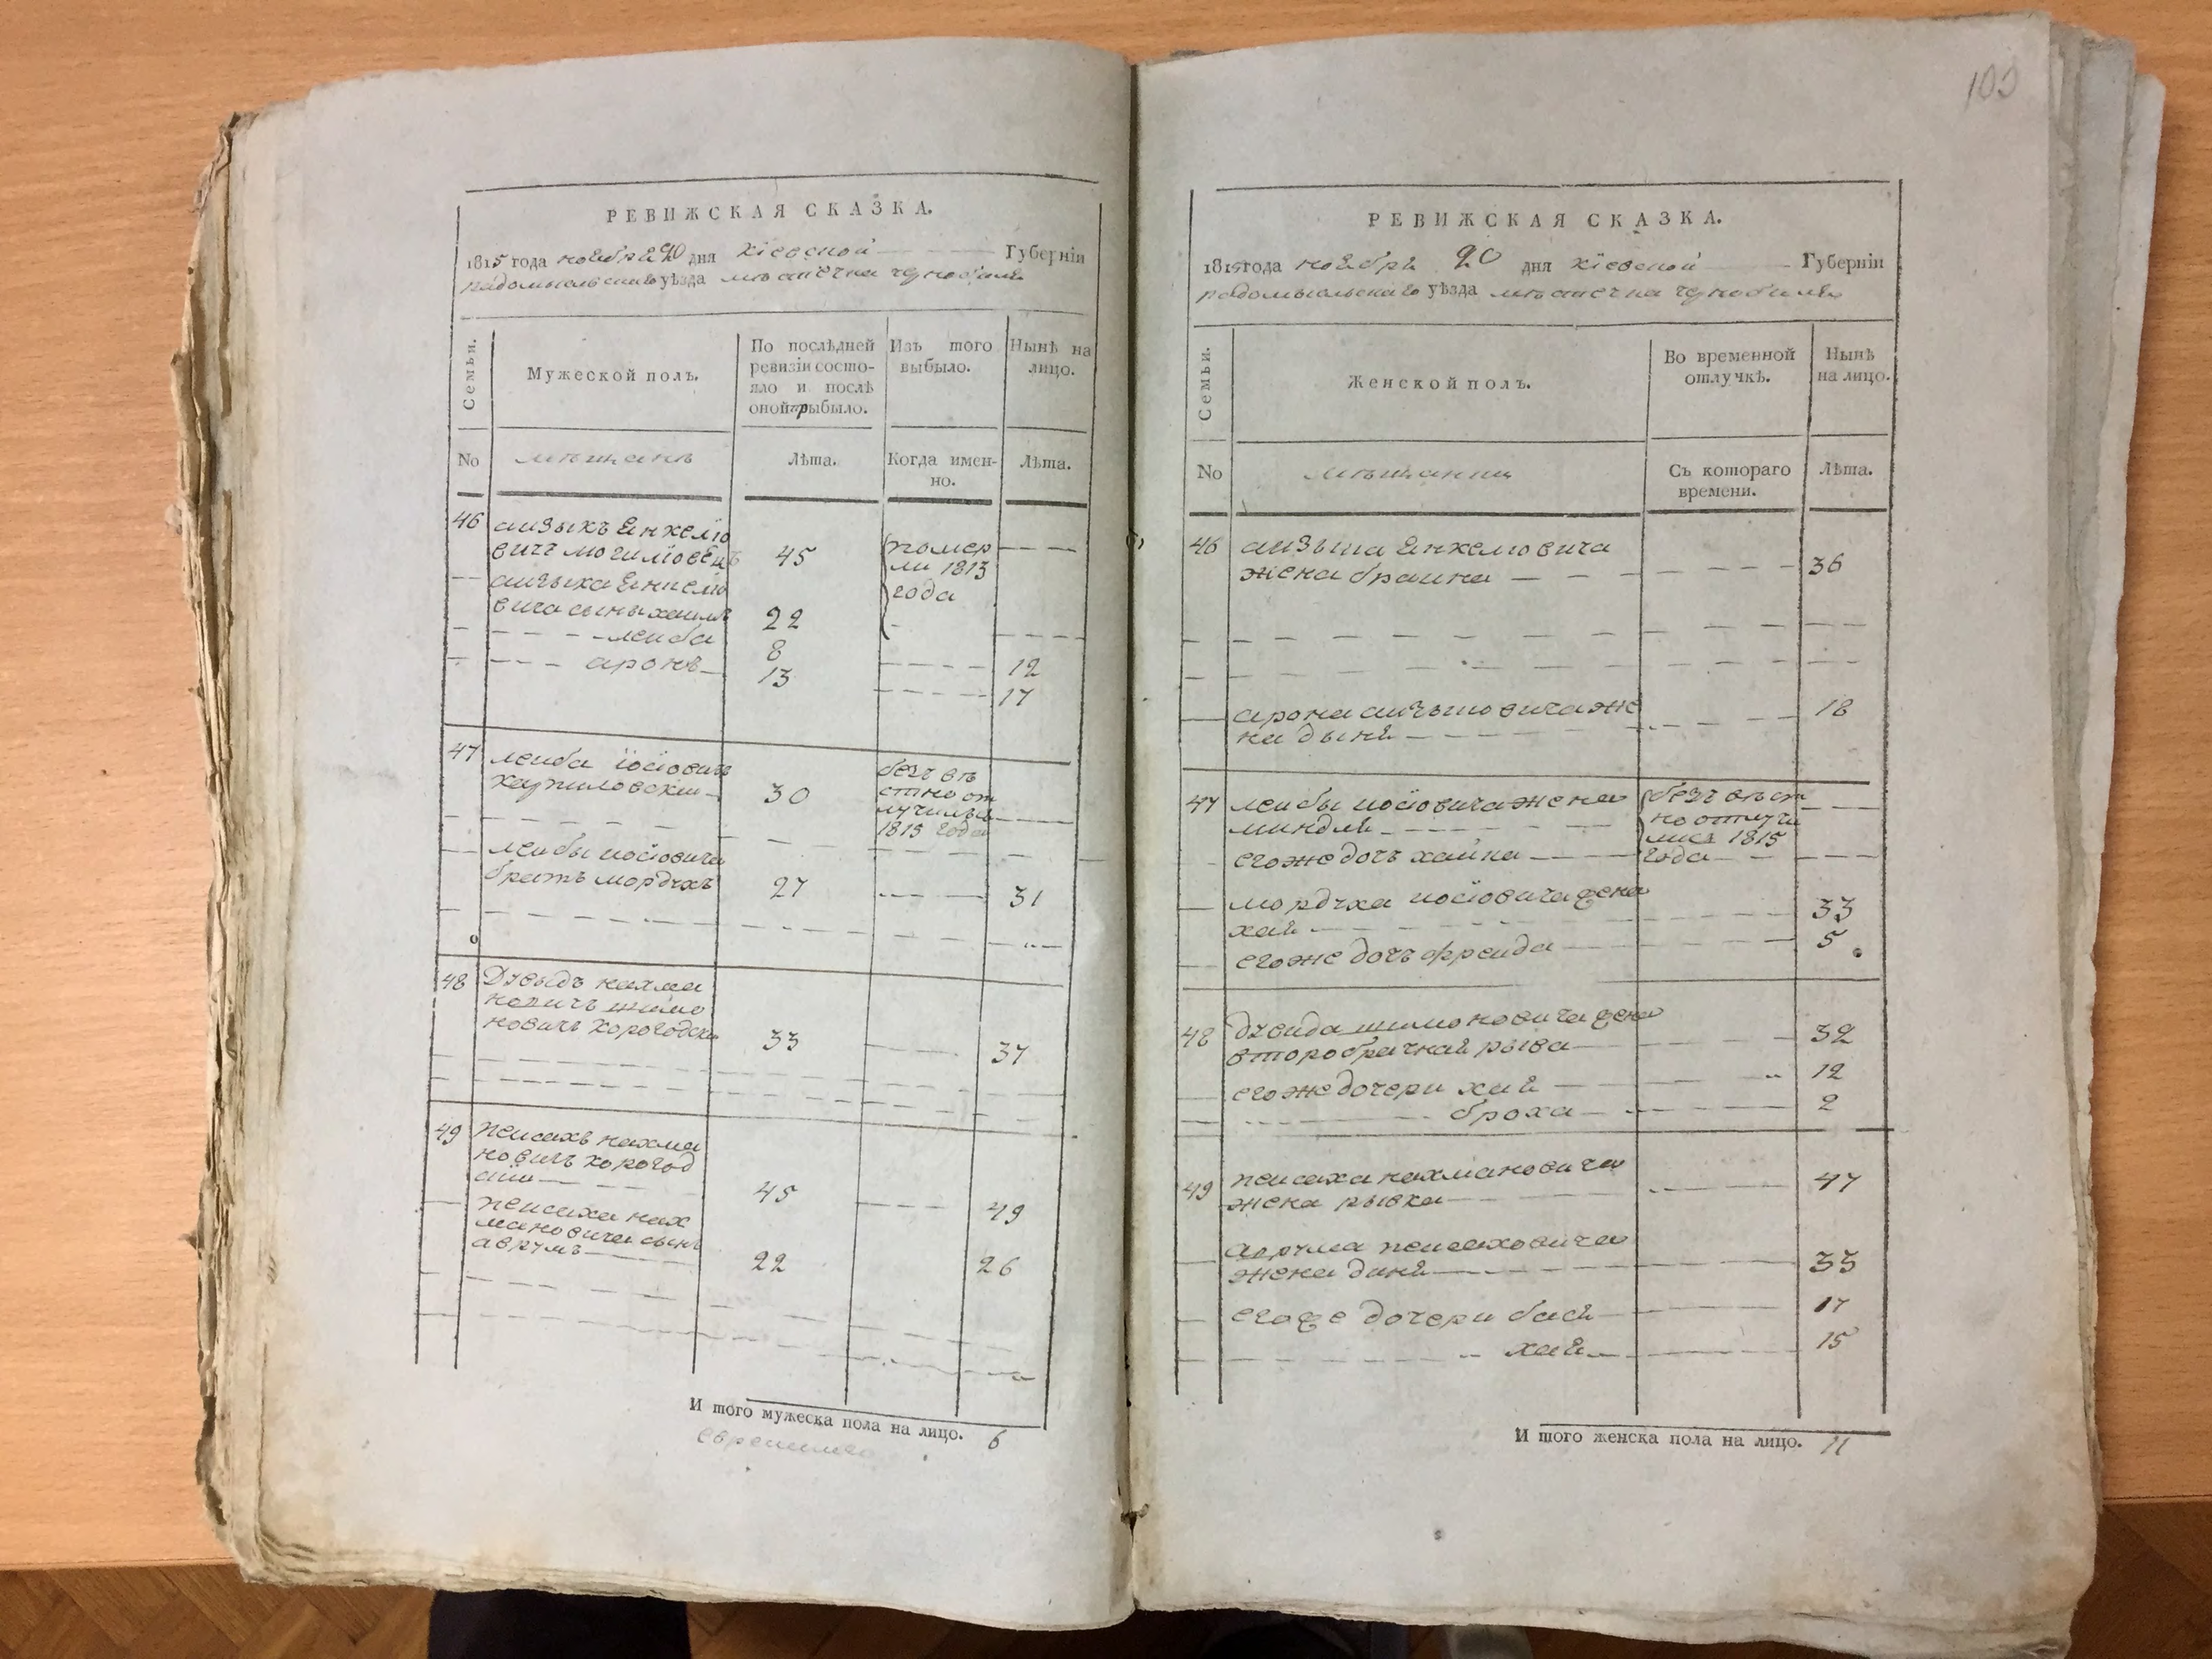 РЕВИЖСКАЯ СКАЗКА.
1815 года ноября 20 дня кіевской Губерніи
радомысльскаго уѣзда мѣстечка чернобиля
Семьи.
Мужеской полъ.
По послѣдней ревизіи состо-
яло и послѣ
оной прибыло.
Изъ того
выбыло.
Нынѣ на
лицо.
No
мѣщанъ
Лѣта.
Когда имен-
но.
Лѣта.
46 аизыкъ Енкелїо
вичъ могилїовецъ 45
помер
ли 1813
года
аизыка Енкелїо
вича сыны хаимъ 22
леиба 8 12
аронъ 13 17
47 леиба їосїовичъ
30
безъ вѣ
стно от
лучился
1815 года
леибы иосїовича
братъ мордухъ 27 31
48 Дувыдъ нахма
новичъ шимо
новичъ хорогодски 33 37
49 пеисахъ нахма
новичъ хорогод
скїи 45 49
пеисаха нах
мановича сынъ
аврумъ 22 26
И того мужеска пола на лицо. 6
100
РЕВИЖСКАЯ СКАЗКА.
1815 года ноября 20 дня кіевской Губерніи
радомысльскаго уѣзда мѣстечка чернобиля
Семьи.
Женской полъ.
Во временной
отлучкѣ.
Нынѣ
на лицо.
No
мѣщанки
Съ котораго
времени.
Лѣта.
46 аизыка Енкелиовича
жена браина 36
арона аизыковича же
на дыня 18
47 леибы иосїовича жена
миндля
его же дочъ хаина
безъ вѣст
но отлучи
лися 1815
года
мордуха иосїовича жена
хая 33
его же дочъ фреида 5
48 дувида шимоновича жена
второбрачная рыва 32
его же дочери хая 12
броха 2
49 пеисаха нахмановича
жена рывка 47
аврума пеисаховича
жена диня 33
его же дочери бася 17
хая 15
И того женска пола на лицо. 11